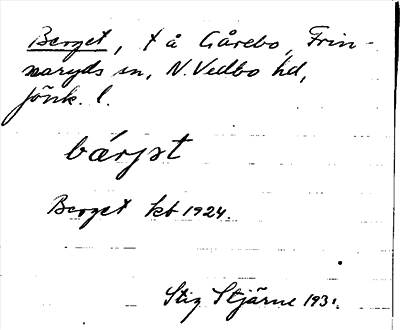 Berget, t å Gårebo, Frin-
naryds sn, N. Vedbo hd,
Jönk. l.
bærjət
Berget kb 1924.
Stig Stjärne 193.